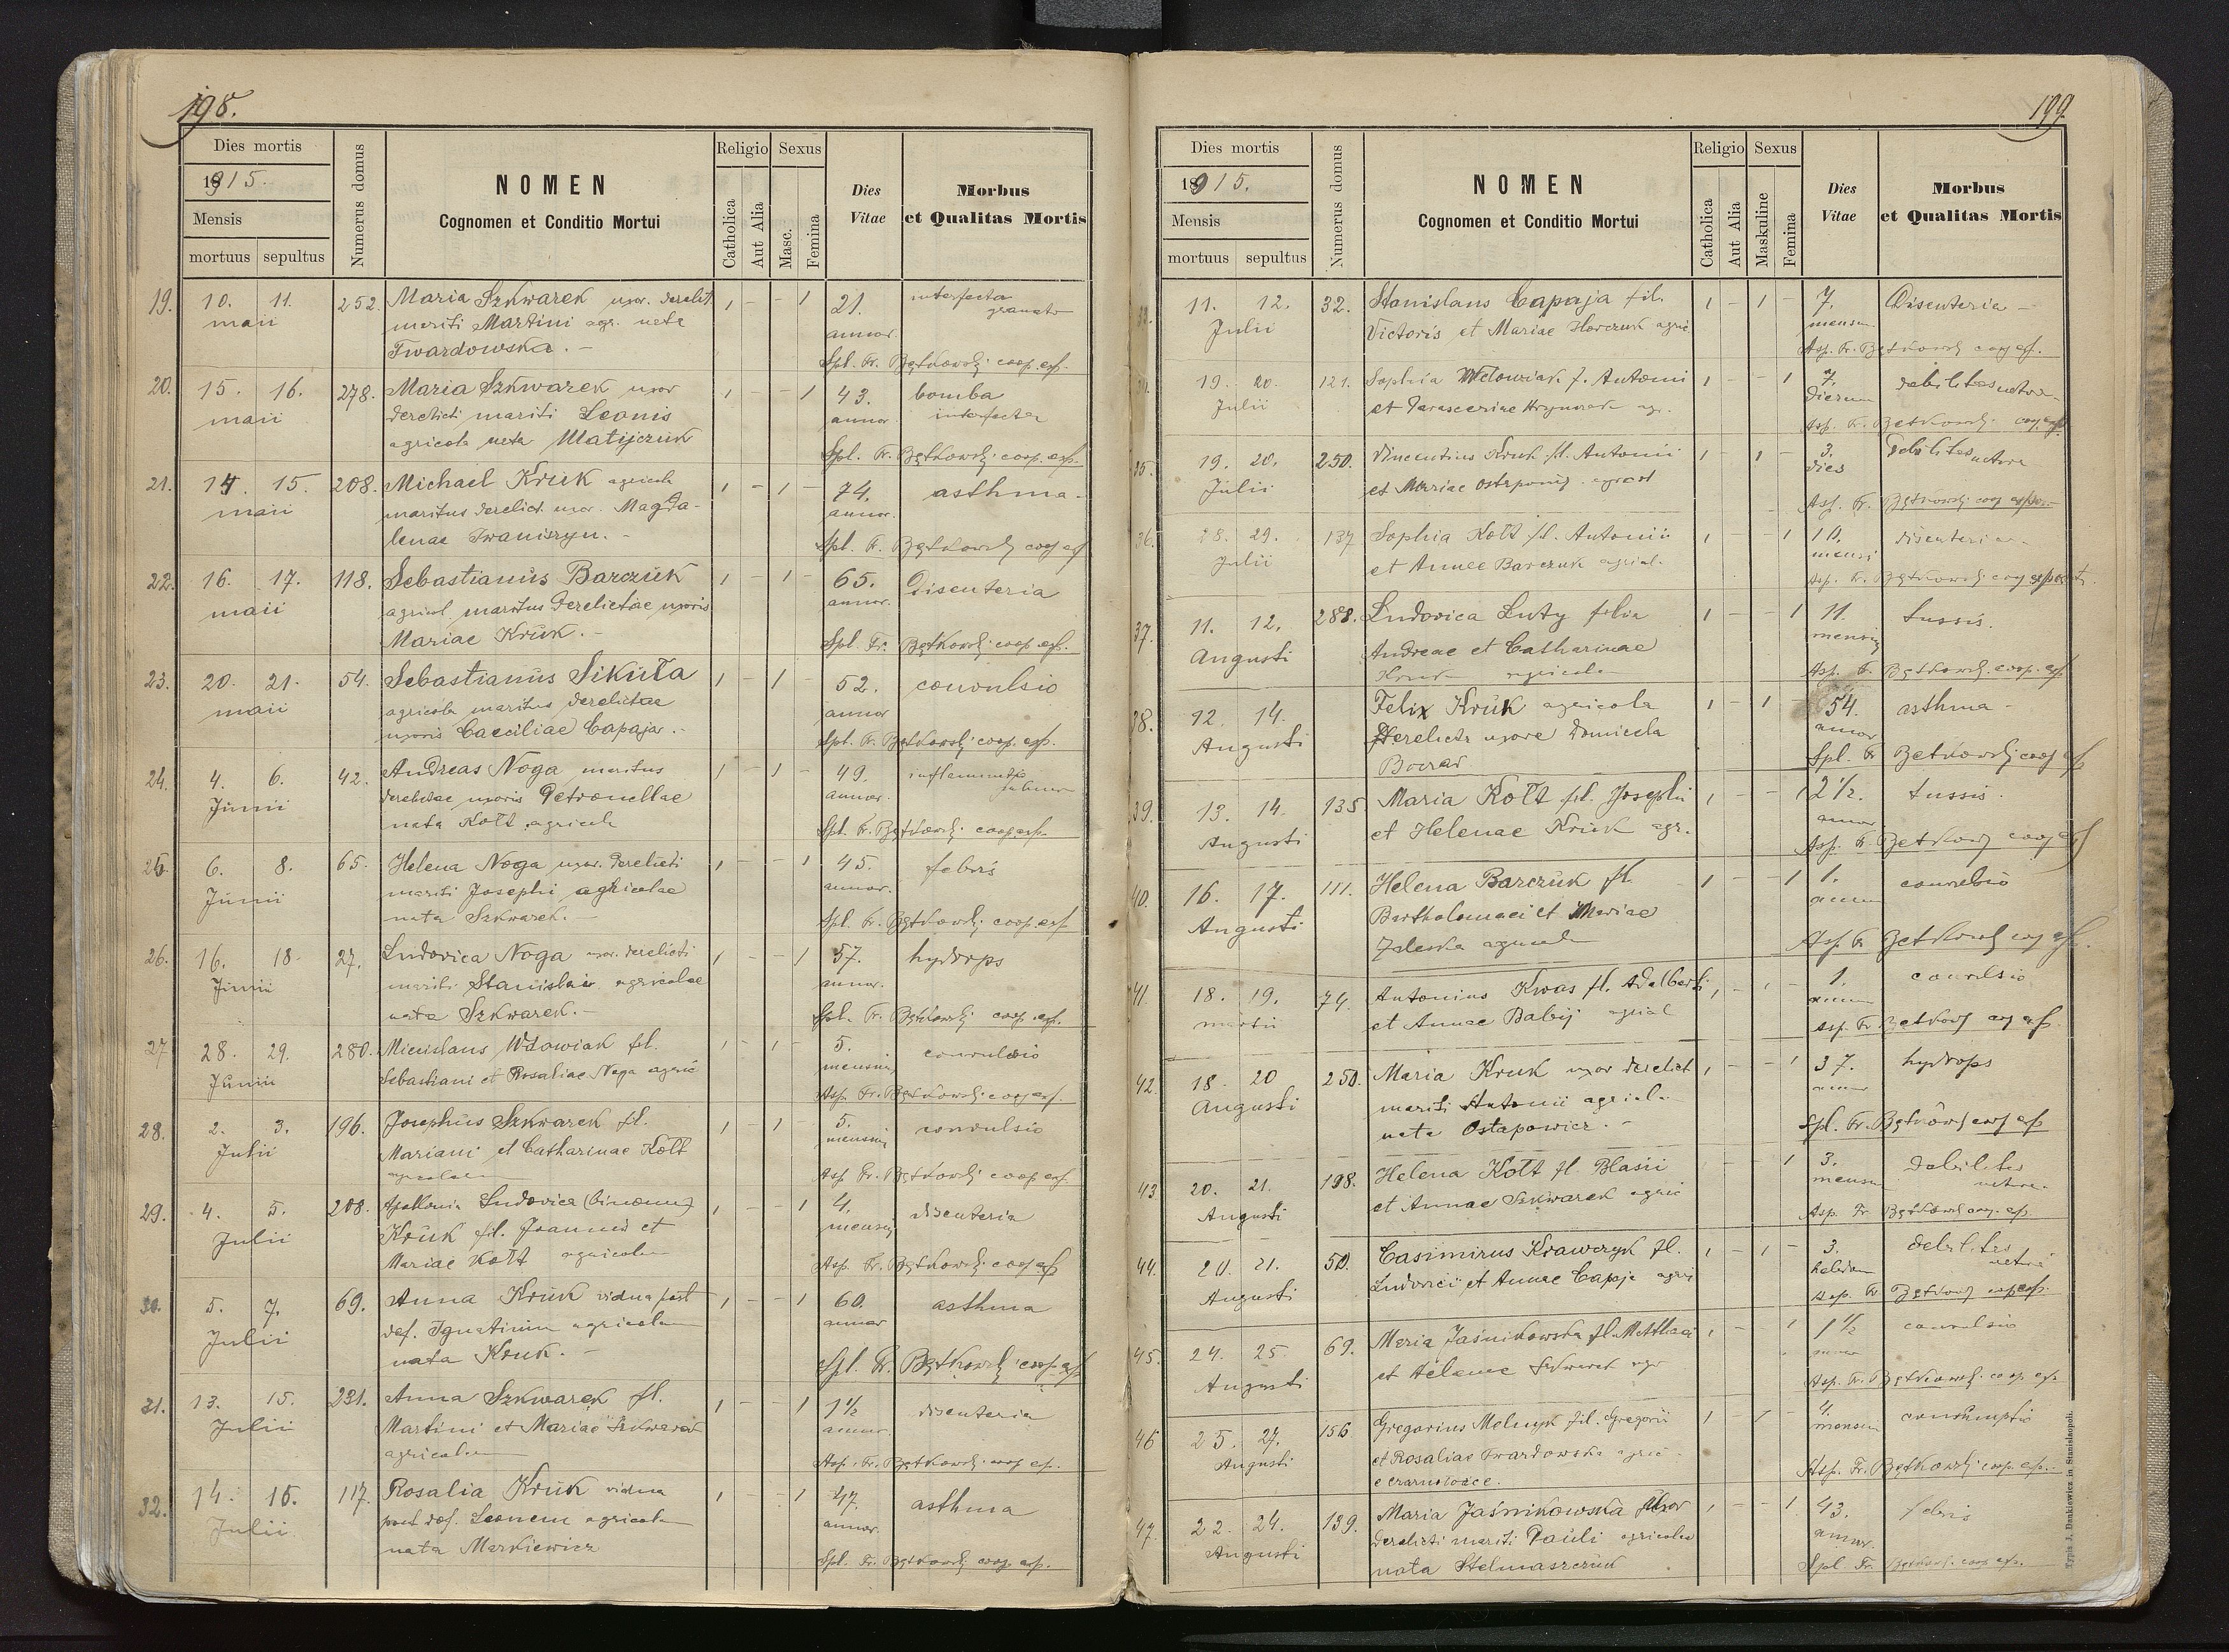 198.
Dies mortis
1915.
Mensis
mortuus sepultus
Numerus domus
NOMEN
Cognomen et Conditio Mortui
Religio Sexus
Catholica
Aut Alia
Masc.
Femina
Dies
Vitae
Morbus
et Qualitas Mortis
19. 10. 11. 252. Maria Szkwarek uxor. derelict. 1 - - 1 21. interfecta
maii mariti Martini agr. nata annor. granato
Twardowska. -
Spl. Fr. Bętkowski coop. exp.
20. 15. 16. 278. Maria Szkwarek uxor 1 - - 1 43. bomba
maii derelicti mariti Leonis annor interfecta
agricola nata Matijczuk
Spl. Fr. Bętkowski coop. exp.
21. 14. 15. 208. Michael Kruk agricola 1 - 1 - 74. asthma -
maii maritus derelict. uxor. Magda- annor.
lenae Iwaniszyn. -
Spl. Fr. Bętkowski coop exp
22. 16. 17. 118. Sebastianus Barczuk 1 - 1 - 65. Disenteria
maii agricol maritus derelictae uxoris annor.
Mariae Kruk. -
Spl. Fr. Bętkowski coop. exp.
23. 20. 21. 54. Sebastianus Sikuta 1 - 1 - 52. convulsio
maii agricola maritus derelictae annor
uxoris Caeciliae Capajar. -
Spl. Fr. Bętkowski coop. exp.
24. 4. 6. 42. Andreas Noga maritus 1 - 1 - 49.
Junii derelictae uxoris Petronellae annor.
nata Kott agricola
Spl. Fr. Bętkowski coop exp.
25 6. 8. 65. Helena Noga uxor. derelicti 1 - - 1 45. febris
Junii mariti Josephi agricolae annor.
nata Szkwarek. -
Spl. Fr. Bętkowski coop. exp
26. 16. 18. 27. Ludovica Noga uxor. derelicti 1 - - 1 57. hydrops
Junii mariti Stanislai agricolae annor.
nata Szkwarek. -
Spl. Fr. Bętkowski coop. exp.
27 28. 29. 280. Micislaus Wdowiak fil. 1 - 1 - 5. convulsio
Junii Sebastiani et Rosaliae Noga agric mensium
Asp. Fr. Bętkowski coop exp.
28. 2. 3. 196. Josephus Szkwarek fil. 1 - 1 - 5. convulsio
Julii Mariani et Catharinae Kott mensium
Asp Fr. Bętkowski coop exp.
29. 4. 5. 208. Apollonia Ludovica (binomu) 1 - - 1 4. disenteria
Julii Kruk fil. Joannis et mensium
Mariae Kott agricolae
Asp. Fr. Bętkowski coop exp
30. 5. 7. 69. Anna Kruk vidua post 1 - - 1 60. asthma
Julii def. Ignatium agricolam annor
nata Kruk. -
Spl. Fr. Bętkowski coop exp
31. 13. 15. 231. Anna Szkwarek fil. 1 - - 1 1 1/2 disenteria
Julii Martini et Mariae Szkwarek annor
agricolarum
Asp. Fr. Bętkowski coop exp.
32. 14. 15. 117. Rosalia Kruk vidua 1 - - 1 47. asthma
Julii post def. Leonem agricola annor.
nata Markiewicz
Spl. Fr. Bętkowski coop exp.
199.
Dies mortis
1915.
Mensis
mortuus sepultus
Numerus domus
NOMEN
Cognomen et Conditio Mortui
Religio Sexus
Catholica
Aut Alia
Maskuline
Femina
Dies
Vitae
Morbus
et Qualitas Mortis
11. 12. 32. Stanislaus Capaja fil. 1 - 1 - 7. Disenteria -
Julii Victoris et Mariae Harczuk agric mensium
Asp. Fr. Bętkowski coop exp.
19. 20. 121. Sophia Wdowiak f. Antonii 1 - - 1 7. debilitas natura
Julii et Parasceviae agr. dierum
Asp. Fr. Bętkowski coop exp
35. 19. 20. 250. Vincentius Kruk fil. Antonii 1 - 1 - 3. debilitas natura
Julii et Mariae dies
Asp. Fr. Bętkowski coop
36. 28. 29. 137 Sophia Kott fil. Antonii 1 - - 1 10. disenteria
Julii et Annae Barczuk agricol. mensi
Asp. Fr. Bętkowski coop
37. 11. 12. 288. Ludovica Luty filia 1 - - 1 11. tussis.
Augusti Andreae et Catharinae mensium
Kruk agricola
Asp. Fr. Bętkowski coop. exp
38. 12. 14. Felix Kruk agricola 1 - 1 - 54. asthma -
Augusti derelicta uxore Domicela annor
Spl. Fr Bętkowski coop exp
39. 13. 14. 135 Maria Kott fil. Josephi 1 - - 1 2 1/2. tussis.
Augusti et Helenae Kruk agr. annor
Asp. Fr. Bętkowski coop exp
40. 16. 17. 111. Helena Barczuk fil 1 - - 1 1. convulsio
Augusti Bartholomaei et Mariae annum
Zaleska agricola
Asp. Fr Bętkowski coop exp.
41. 18. 19. 74. Antonius Kwas fil. Adalberti 1 - 1 - 1. convulsio
martii et Annae Babij agricol annum
Asp. Fr Bętkowski coop exp.
42. 18. 20 250. Maria Kruk uxor derelict 1 - - 1 37. hydrops
Augusti mariti Antonii agricola annor
nata Ostapowicz. -
Spl. Fr. Bętkowski coop exp
43 20. 21. 198. Helena Kott fil Blasii - - 1 3. debilitas
Augusti et Annae Szkwarek agric mensium natura.
Asp. Fr Bętkowski coop. exp
44. 20. 21. 50. Casimirus Krawczyk fil. 1 - 1 - 3. debilitas
Augusti Ludovici et Annae Capaja agri natura
Asp. Fr Bętkowski coop exp.
45. 24. 25. 69. Maria Jaśnikowska fil. Matthaei 1 - - 1 1 1/2 convulsio
Augusti et Helenae Szkwarek agr
Asp. Fr. Bętkowski coop. exp
46 25. 27. 156 Gregorius Melnyk fil. Gregorii 1 - 1 - 4. consumptio
Augusti et Rosaliae Twardowska agric - mensium
e Czarnołoźce.
Asp. Fr. Bętkowski coop. exp. -
47. 22. 24. 139. Maria Jaśnikowska uxor 1 - - 1 43. febris
Augusti derelicti mariti Pauli agricolae annor.
nata Stelmaszczuk
Spl Fr. Bętkowski coop exp.
Typis J. Dankiewicz in Stanislaopoli.